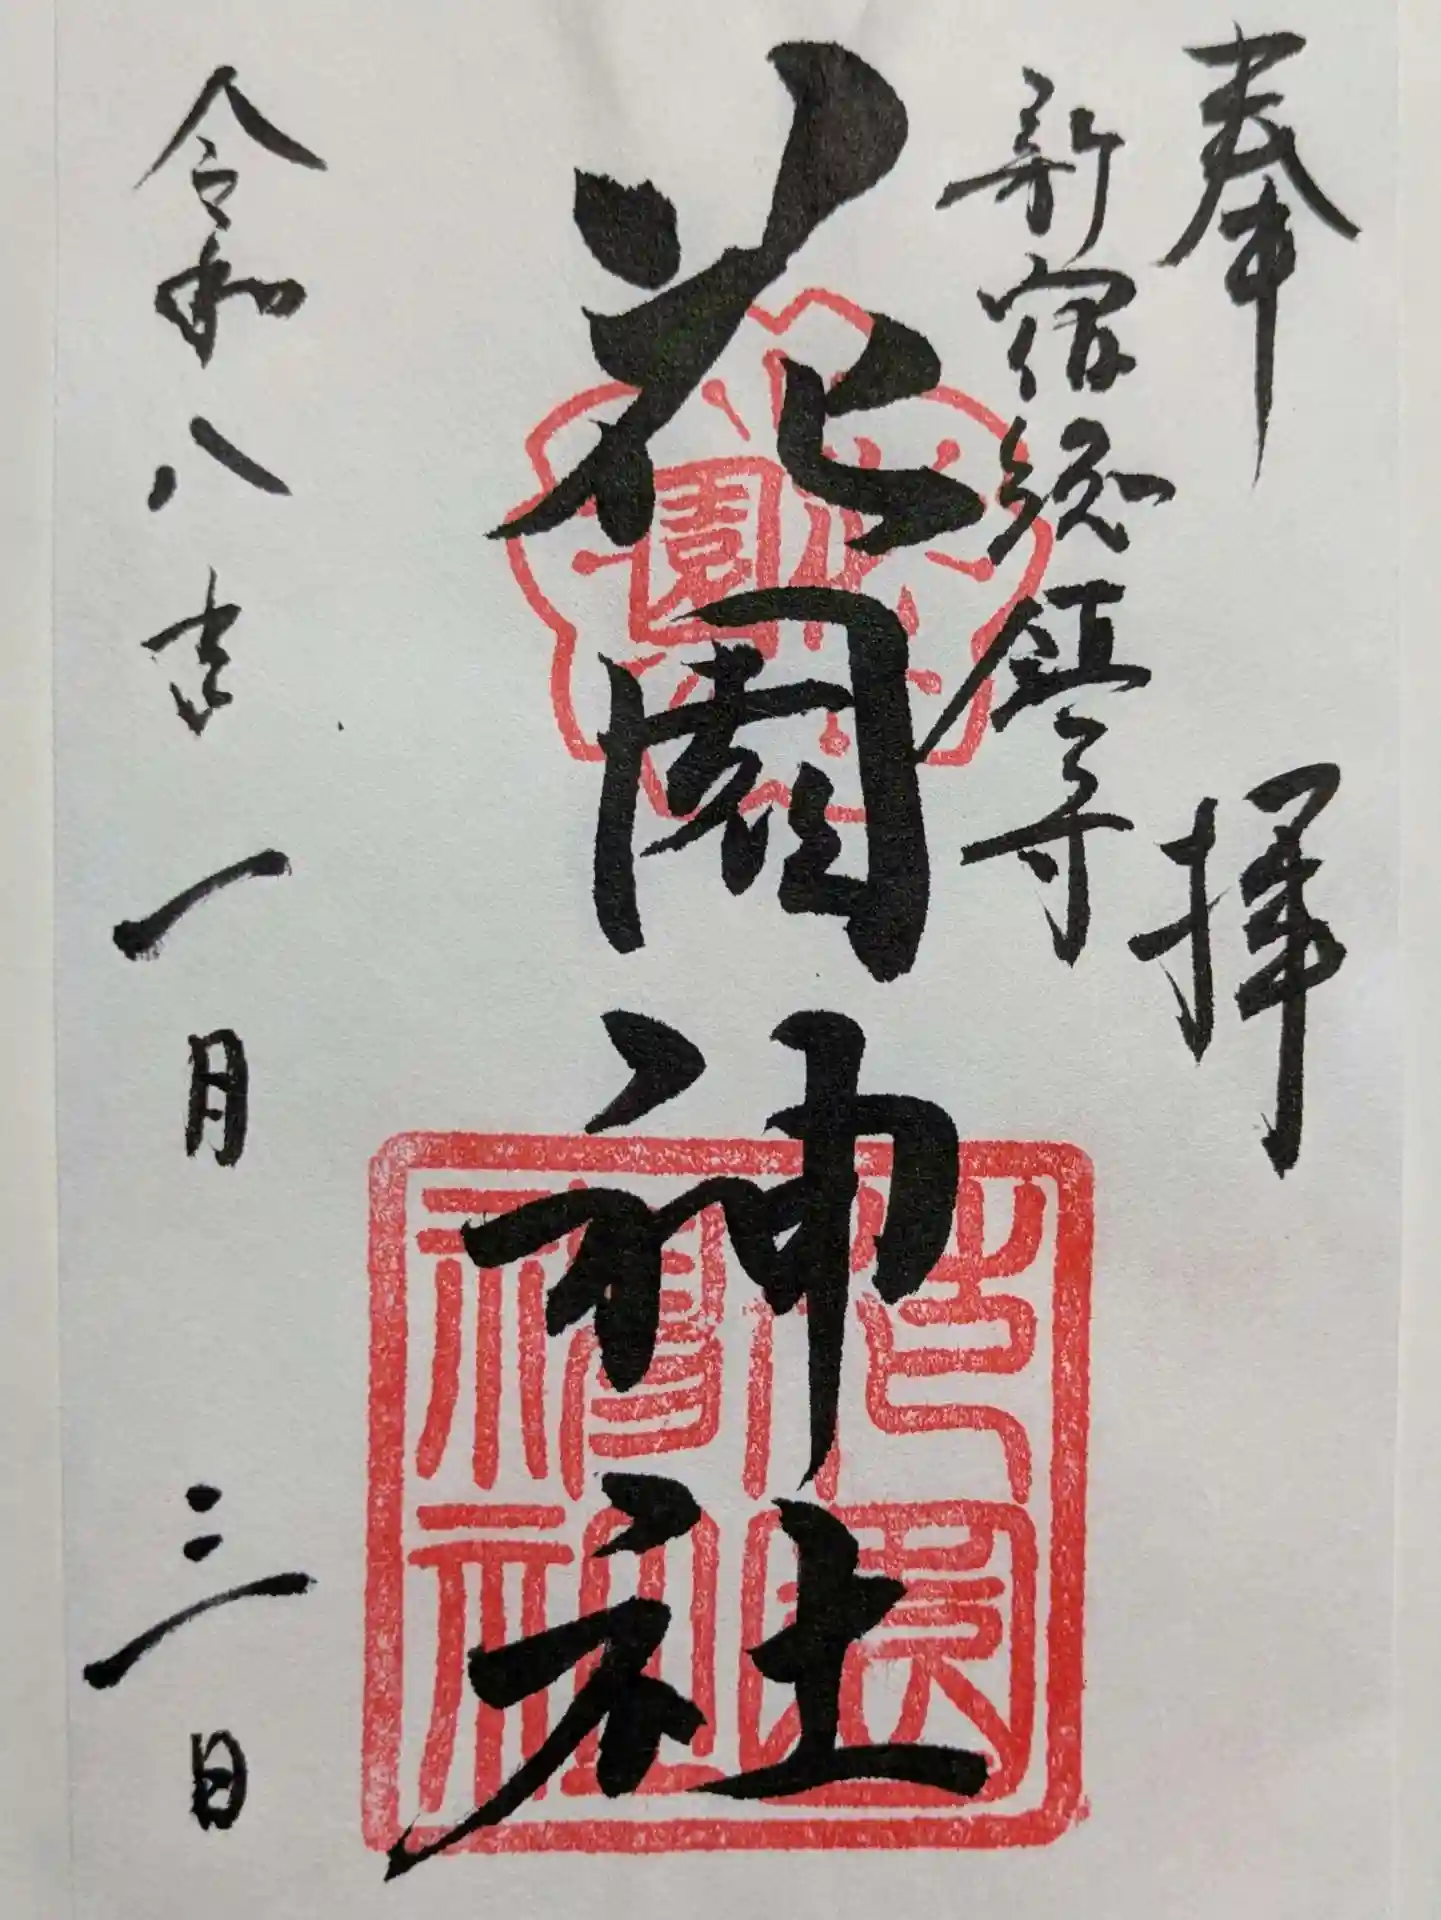 奉拝
新宿総鎮守
花園神社
令和八年一月三日
花園神社
花園神社